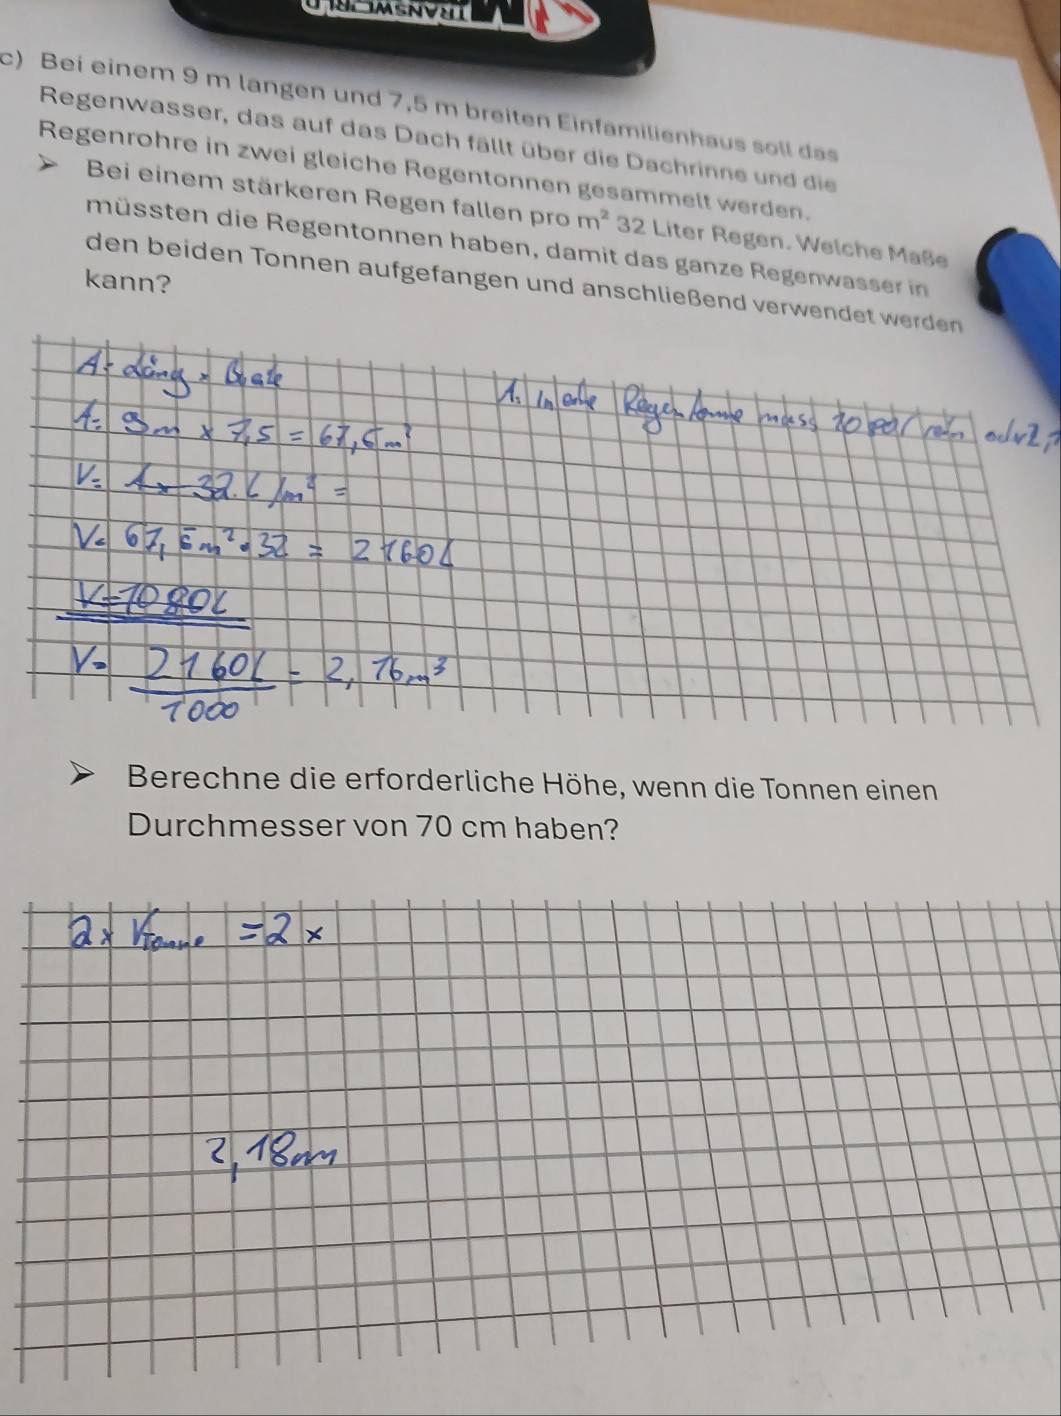 TRANSWORLD
c) Bei einem 9 m langen und 7,5 m breiten Einfamilienhaus soll das
Regenwasser, das auf das Dach fällt über die Dachrinne und die
Regenrohre in zwei gleiche Regentonnen gesammelt werden.
➢ Bei einem stärkeren Regen fallen pro m² 32 Liter Regen. Welche Maße
müssten die Regentonnen haben, damit das ganze Regenwasser in
den beiden Tonnen aufgefangen und anschließend verwendet werden
kann?
A = Läng × Breite
A = 9m × 7,5 = 67,5 m²
A: In eine Regentonne muss 1080l rein oder 2,
V = A × 32 L/m² =
V = 67,5 m² • 32 = 2160L
V = 1080L
V = 2160L / 1000 = 2,16 m³
➢ Berechne die erforderliche Höhe, wenn die Tonnen einen
Durchmesser von 70 cm haben?
2 × VTonne = 2 ×
2,18 m